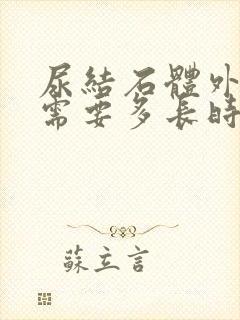 尿結石體外
需要多長時
蘇立言